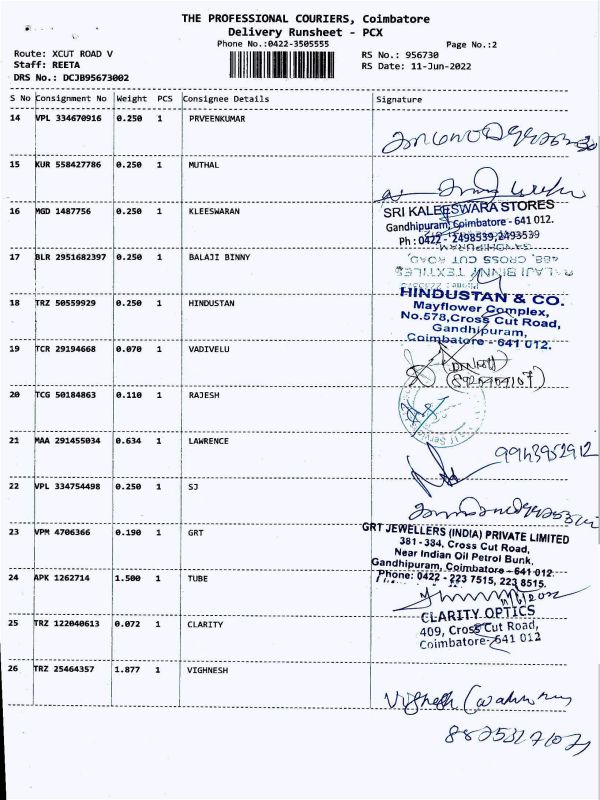 THE PROFESSIONAL COURIERS, Coimbatore
Delivery Runsheet - PCX
Phone No.:0422-3505555
Page No.:2
Route: XCUT ROAD V
RS No.: 956730
Staff: REETA
RS Date: 11-Jun-2022
DRS No.: DCJB95673002
S No Consignment No Weight PCS Consignee Details Signature
14 VPL 334670916 0.250 1 PRVEENKUMAR
15 KUR 558427786 0.250 1 MUTHAL
16 MGD 1487756 0.250 1 KLEESWARAN
SRI KALEESWARA STORES
Gandhipuram, Coimbatore - 641 012.
Ph : 0422 - 2498539, 2493539
17 BLR 2951682397 0.250 1 BALAJI BINNY
GANDHIPURAM
488, CROSS CUT ROAD,
BALAJI BINNY TEXTILES
18 TRZ 50559929 0.250 1 HINDUSTAN
HINDUSTAN & CO.
Mayflower Complex,
No.578, Cross Cut Road,
Gandhipuram,
Coimbatore - 641 012.
19 TCR 29194668 0.070 1 VADIVELU
20 TCG 50184863 0.110 1 RAJESH
21 MAA 291455034 0.634 1 LAWRENCE
9943952912
22 VPL 334754498 0.250 1 SJ
23 VPM 4706366 0.190 1 GRT
GRT JEWELLERS (INDIA) PRIVATE LIMITED
381 - 384, Cross Cut Road,
Near Indian Oil Petrol Bunk,
Gandhipuram, Coimbatore - 641 012.
Phone: 0422 - 223 7515, 223 8515.
24 APK 1262714 1.500 1 TUBE
25 TRZ 122040613 0.072 1 CLARITY
CLARITY OPTICS
409, Cross Cut Road,
Coimbatore-641 012
26 TRZ 25464357 1.877 1 VIGHNESH
Vighnesh